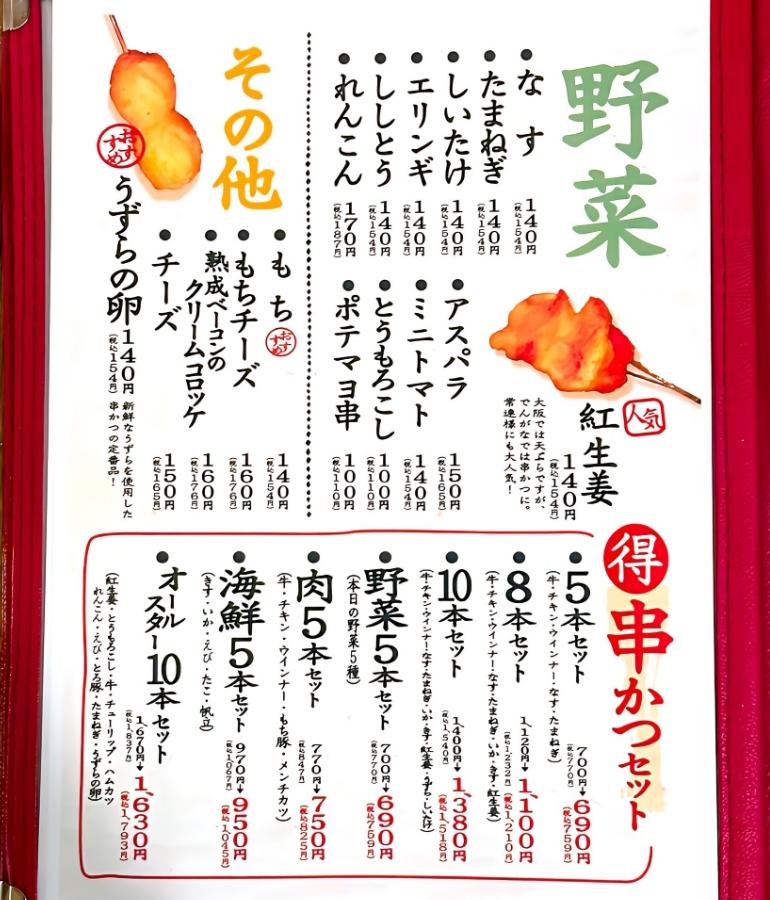 野菜
なす 140円(税込154円)
たまねぎ 140円(税込154円)
しいたけ 140円(税込154円)
エリンギ 140円(税込154円)
ししとう 140円(税込154円)
れんこん 170円(税込187円)
人気
紅生姜 140円(税込154円)
大阪では天ぷらですが、
でんがなでは串かつに。
常連様にも大人気！
アスパラ 150円(税込165円)
ミニトマト 140円(税込154円)
とうもろこし 100円(税込110円)
ポテマヨ串 100円(税込110円)
その他
もち おすすめ 140円(税込154円)
もちチーズ 160円(税込176円)
熟成ベーコンの
クリームコロッケ 160円(税込176円)
チーズ 150円(税込165円)
おすすめ
うずらの卵 140円(税込154円)
新鮮なうずらを使用した
串かつの定番品！
得 串かつセット
5本セット 700円→690円
(税込770円) (税込759円)
(牛・チキン・ウインナー・なす・たまねぎ)
8本セット 1,120円→1,100円
(税込1,232円) (税込1,210円)
(牛・チキン・ウインナー・なす・たまねぎ・いか・きす・紅生姜)
10本セット 1,400円→1,380円
(税込1,540円) (税込1,518円)
(牛・チキン・ウインナー・なす・たまねぎ・いか・きす・紅生姜・うずら・しいたけ)
野菜5本セット 700円→690円
(税込770円) (税込759円)
(本日の野菜5種)
肉5本セット 770円→750円
(税込847円) (税込825円)
(牛・チキン・ウインナー・もち豚・メンチカツ)
海鮮5本セット 970円→950円
(税込1,067円) (税込1,045円)
(きす・いか・えび・たこ・帆立)
オールスター10本セット 1,670円→1,630円
(税込1,837円) (税込1,793円)
(紅生姜・とうもろこし・牛・チューリップ・ハムカツ
れんこん・えび・とろ豚・たまねぎ・うずらの卵)